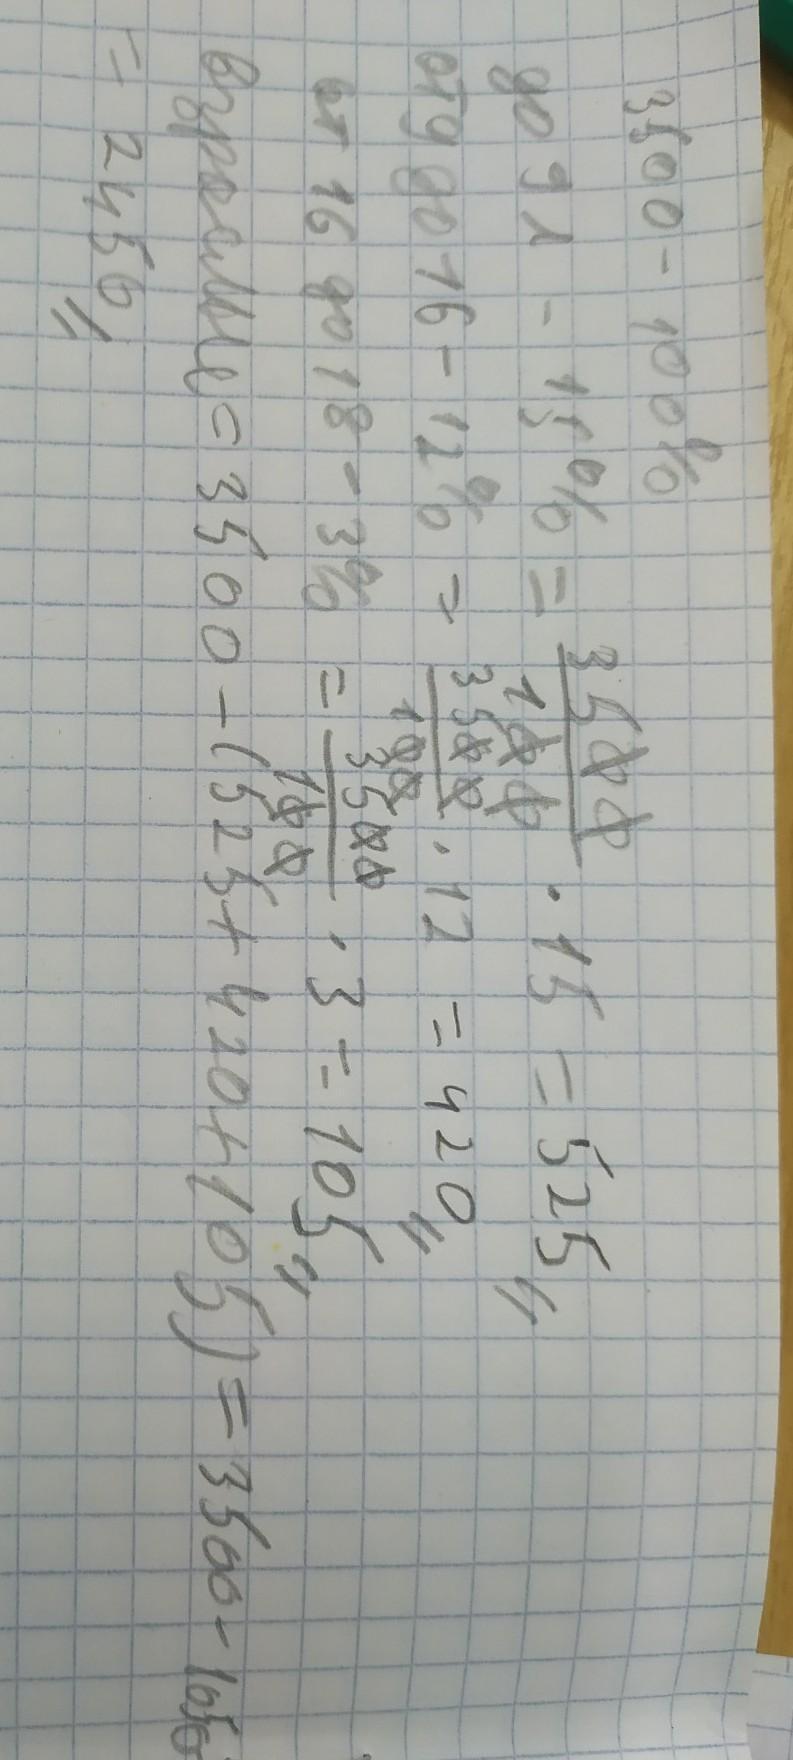 3500 - 100%
до 9 л - 15% = 3500/100 · 15 = 525
от 9 до 16 - 12% = 3500/100 · 12 = 420
от 16 до 18 - 3% = 3500/100 · 3 = 105
взрослые = 3500 - (525 + 420 + 105) = 3500 - 1050
= 2450